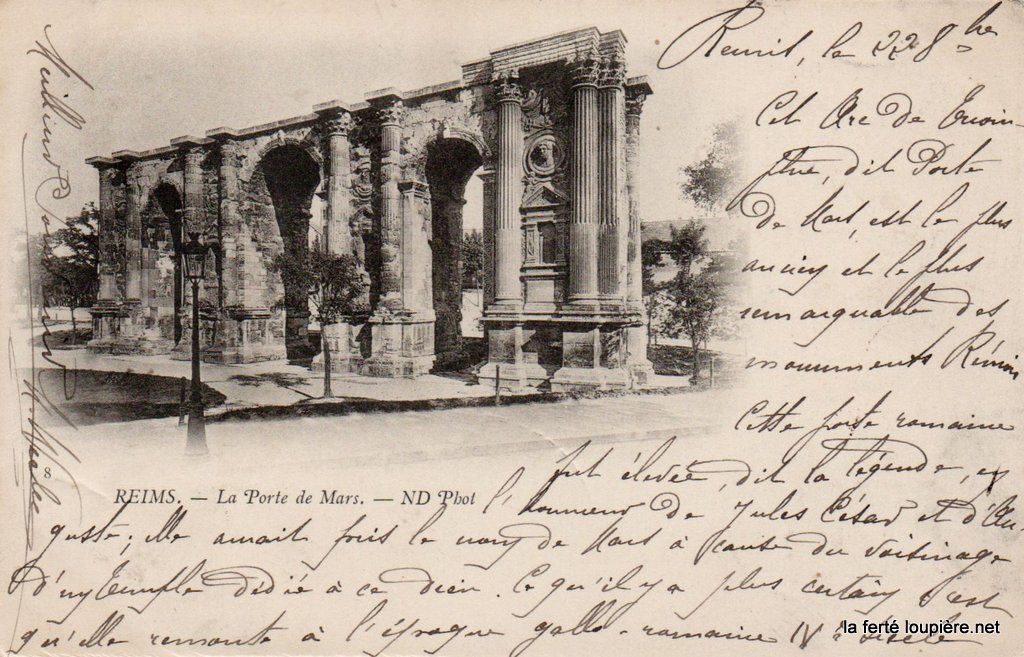 Reuil, le 22 8bre
Cet Arc de Triom-
phe, dit Porte
de Mars, est le plus
ancien et le plus
remarquable des
monuments Rémois
Cette porte romaine
fut élevée, dit la légende, en
l'honneur de Jules César et d'Au
guste; elle aurait pris le nom de Mars à cause du voisinage
d'un temple dédié à ce dieu. Ce qu'il y a plus certain c'est
qu'elle remonte à l'époque gallo-romaine IVe siècle
8
REIMS. — La Porte de Mars. — ND Phot
Meilleurs
la ferté loupière.net